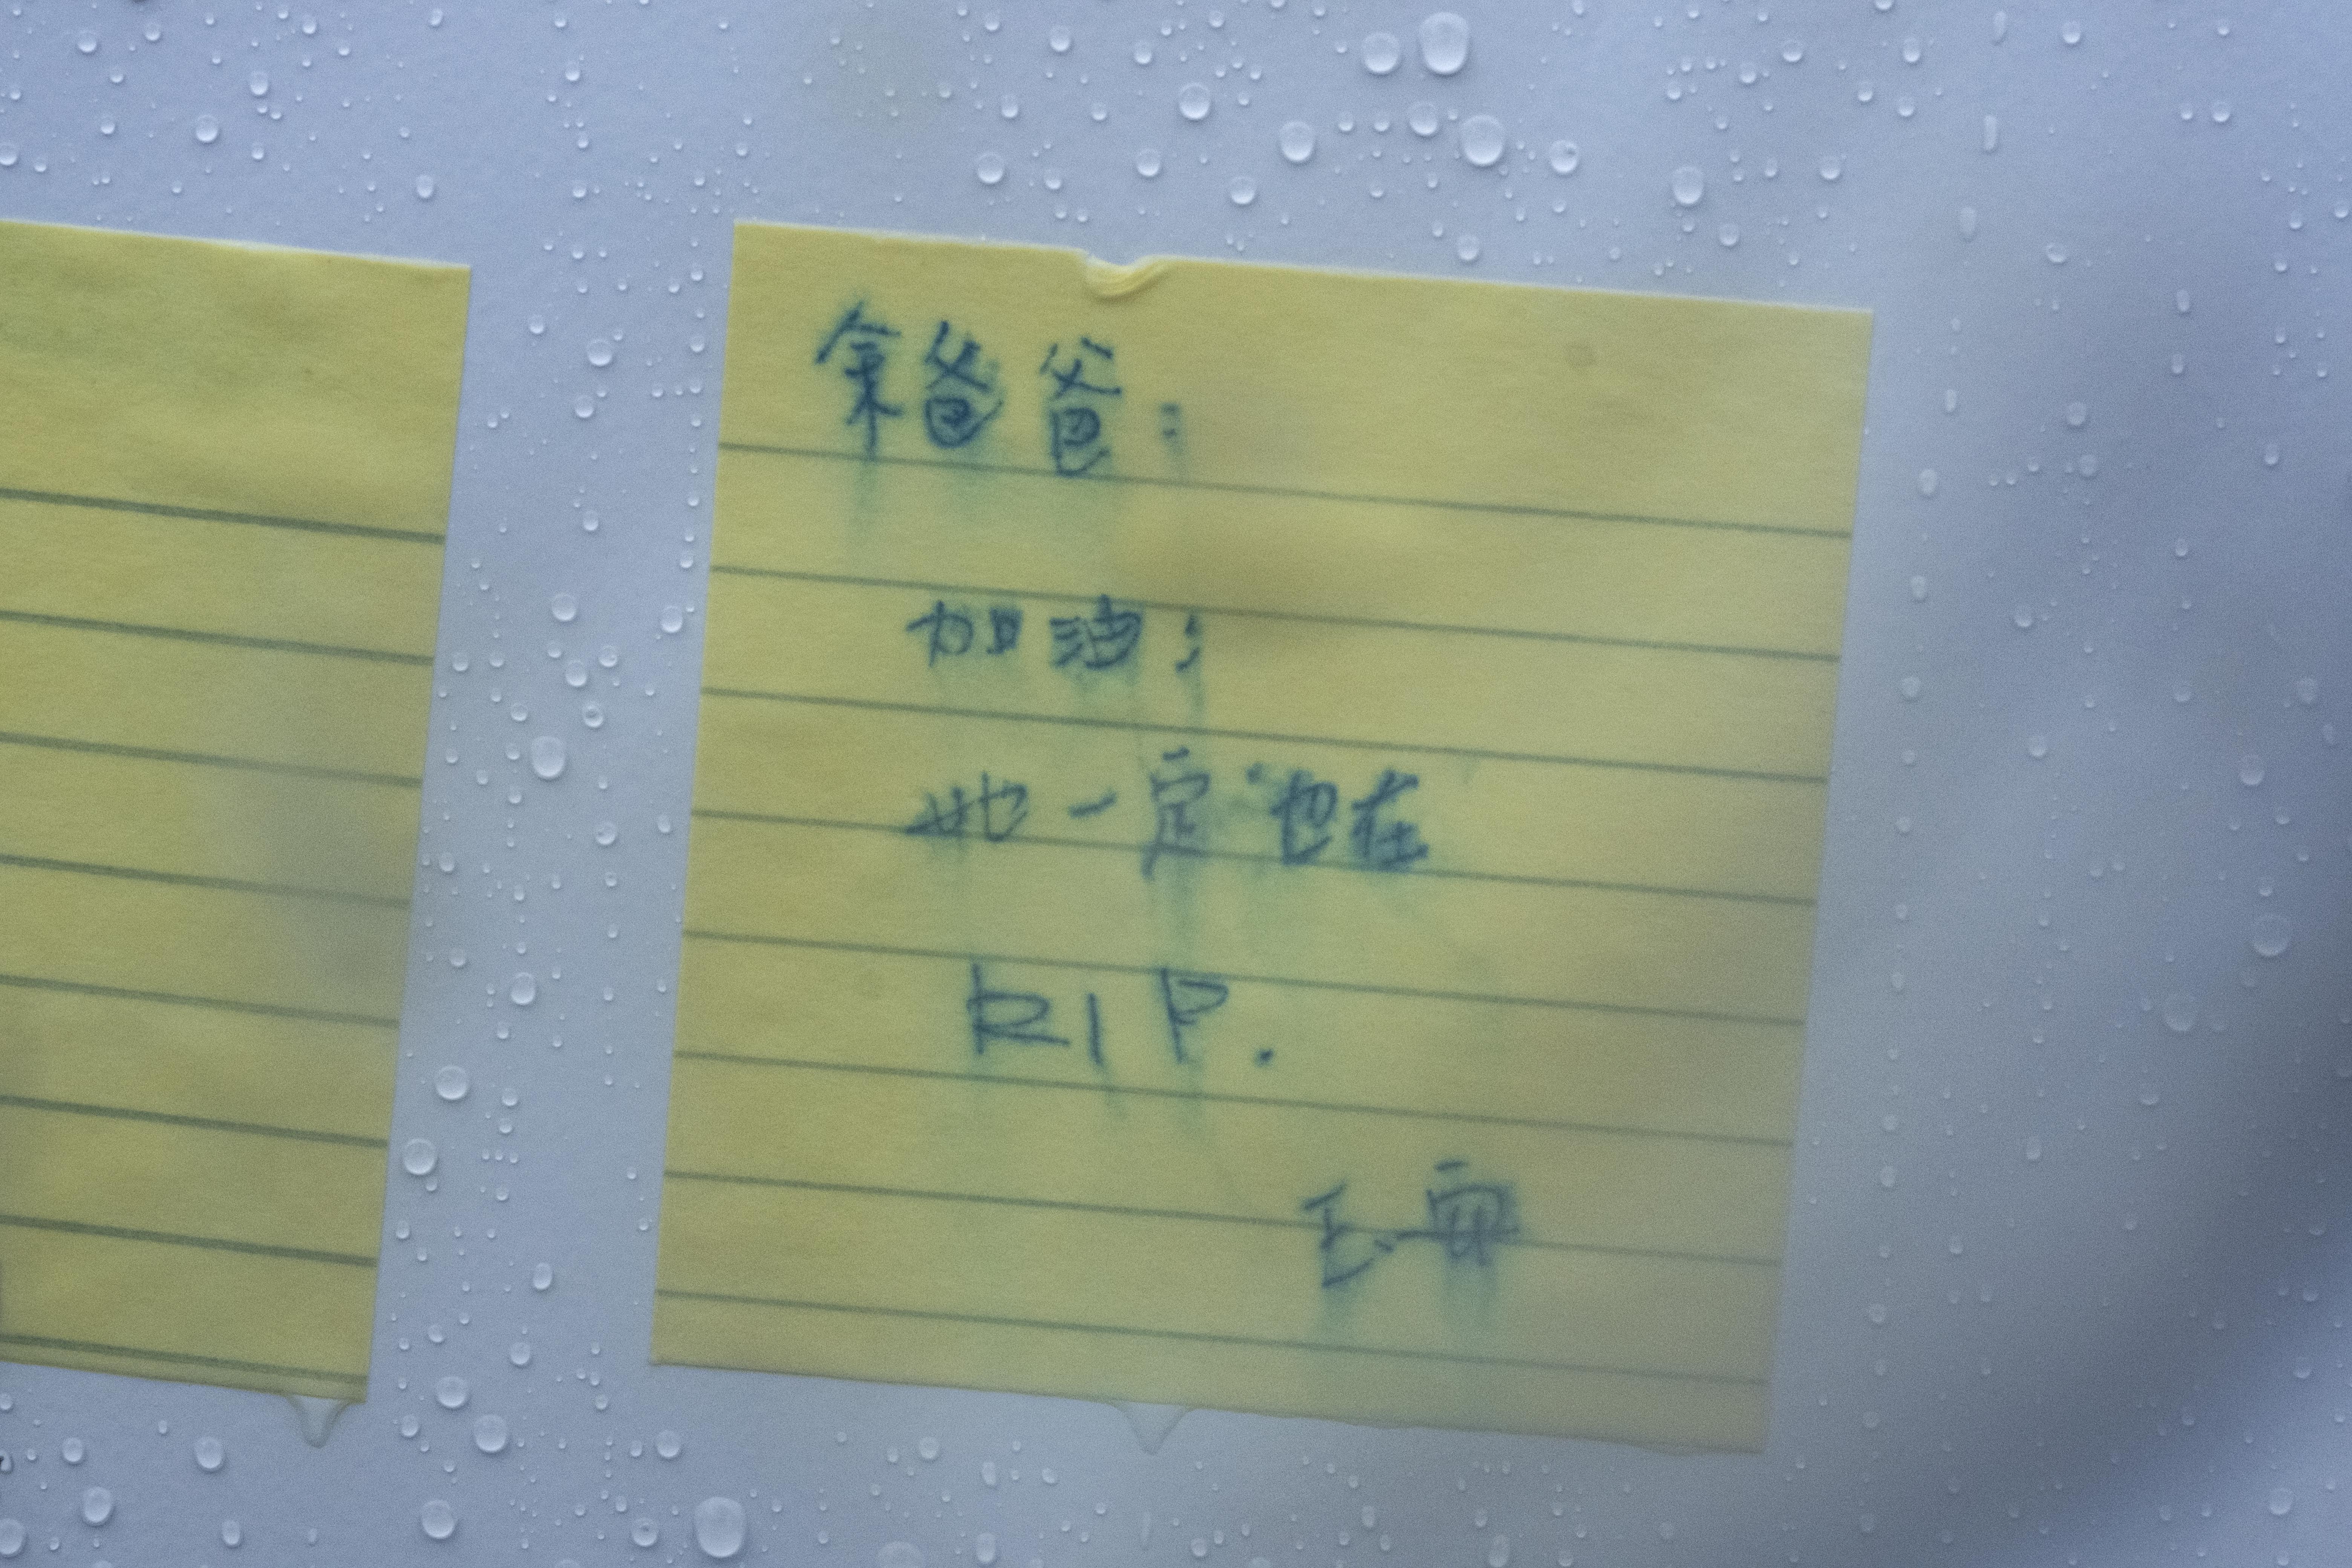 余爸爸：
加油！
她一定也在
RIP.